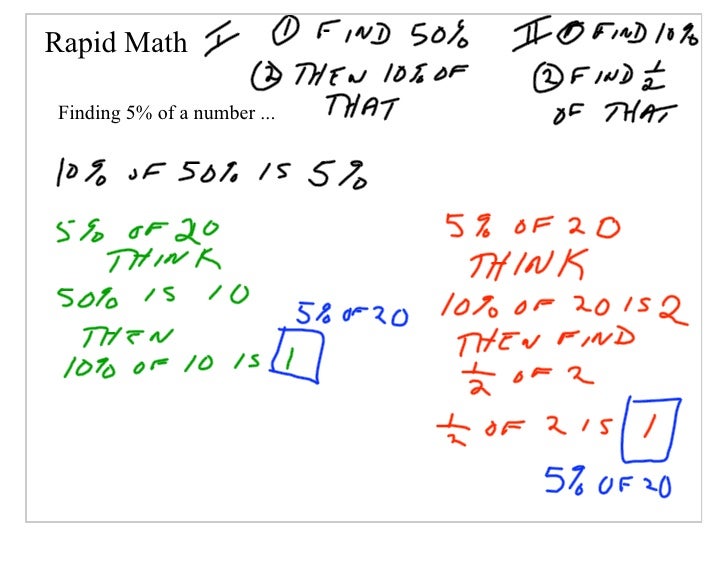 Rapid Math
I ① FIND 50%
② THEN 10% OF
THAT
II ① FIND 10%
② FIND 1/2
OF THAT
Finding 5% of a number ...
10% OF 50% IS 5%
5% OF 20
THINK
50% IS 10
THEN
10% OF 10 IS 1
5% OF 20
5% OF 20
THINK
10% OF 20 IS 2
THEN FIND
1/2 OF 2
1/2 OF 2 IS 1
5% OF 20